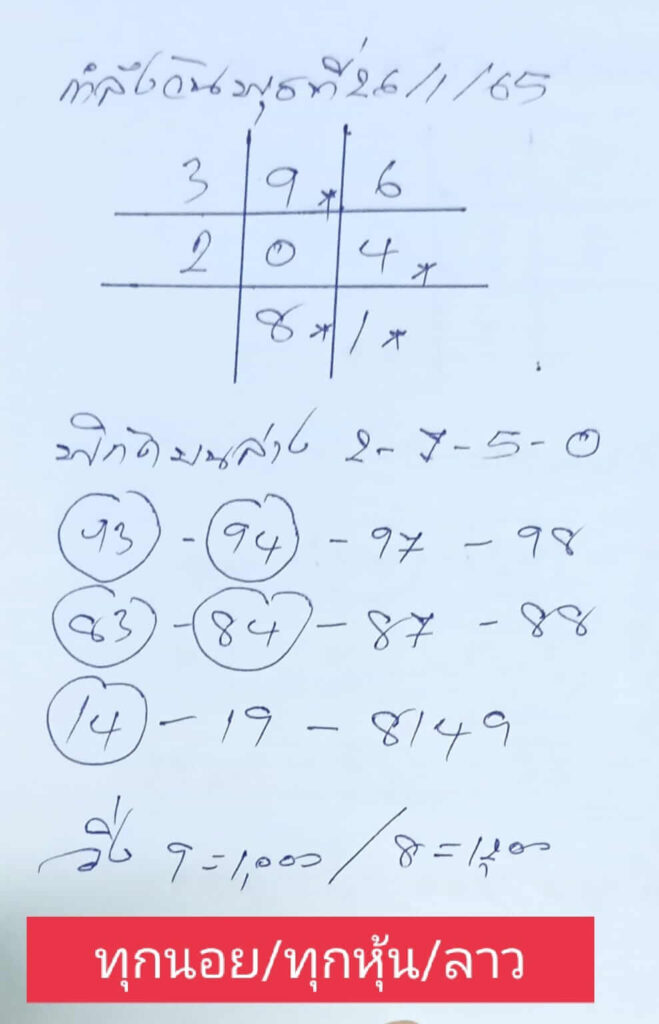 กำลังวันพุธที่ 26/1/65
3 9* 6
2 0 4*
8* 1*
พิกัดบนล่าง 2-7-5-0
93 - 94 - 97 - 98
83 - 84 - 87 - 88
14 - 19 - 8149
วิ่ง 9=1,000 / 8=
ทุกนอย/ทุกหุ้น/ลาว